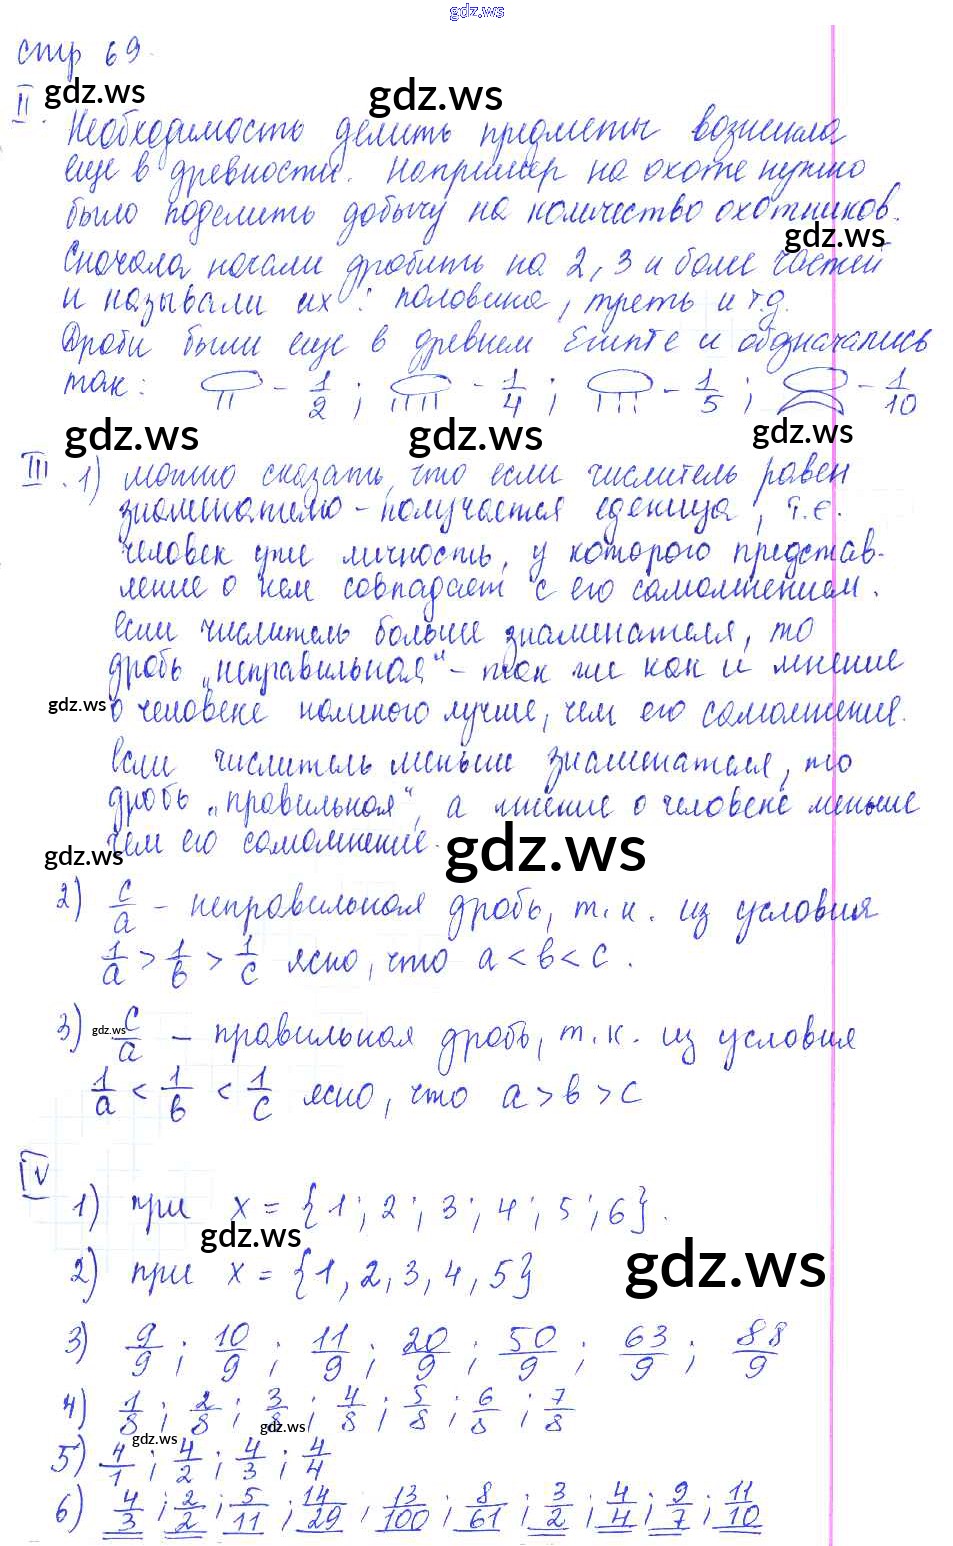 gdz.ws
стр 69.
II. gdz.ws gdz.ws
Необходимость делить предметы возникла
еще в древности. Например на охоте нужно
было поделить добычу на количество охотников.
gdz.ws
Сначала начали дробить на 2, 3 и более частей
и называли их: половина, треть и т.д.
Дроби были еще в древнем Египте и обозначались
так: - 1/2 ; - 1/4 ; - 1/5 ; - 1/10
gdz.ws gdz.ws gdz.ws
III. 1) можно сказать, что если числитель равен
знаменателю - получается единица, т.е.
человек уже личность, у которого представ-
ление о нем совпадает с его самомнением.
Если числитель больше знаменателя, то
дробь „неправильная“ - так же как и мнение
gdz.ws о человеке намного лучше, чем его самомнение.
Если числитель меньше знаменателя, то
дробь „правильная“, а мнение о человеке меньше
чем его самомнение.
gdz.ws gdz.ws
2) c/a - неправильная дробь, т.к. из условия
1/a > 1/b > 1/c ясно, что a < b < c.
3) gdz.ws c/a - правильная дробь, т.к. из условия
1/a < 1/b < 1/c ясно, что a > b > c
IV
1) при x = {1; 2; 3; 4; 5; 6}.
gdz.ws gdz.ws
2) при x = {1, 2, 3, 4, 5}
3) 9/9 ; 10/9 ; 11/9 ; 20/9 ; 50/9 ; 63/9 ; 88/9
4) 1/8 ; 2/8 ; 3/8 ; 4/8 ; 5/8 ; 6/8 ; 7/8
gdz.ws gdz.ws
5) 4/1 ; 4/2 ; 4/3 ; 4/4
6) 4/3 ; 2/2 ; 5/11 ; 14/29 ; 13/100 ; 8/61 ; 3/2 ; 4/4 ; 9/7 ; 11/10